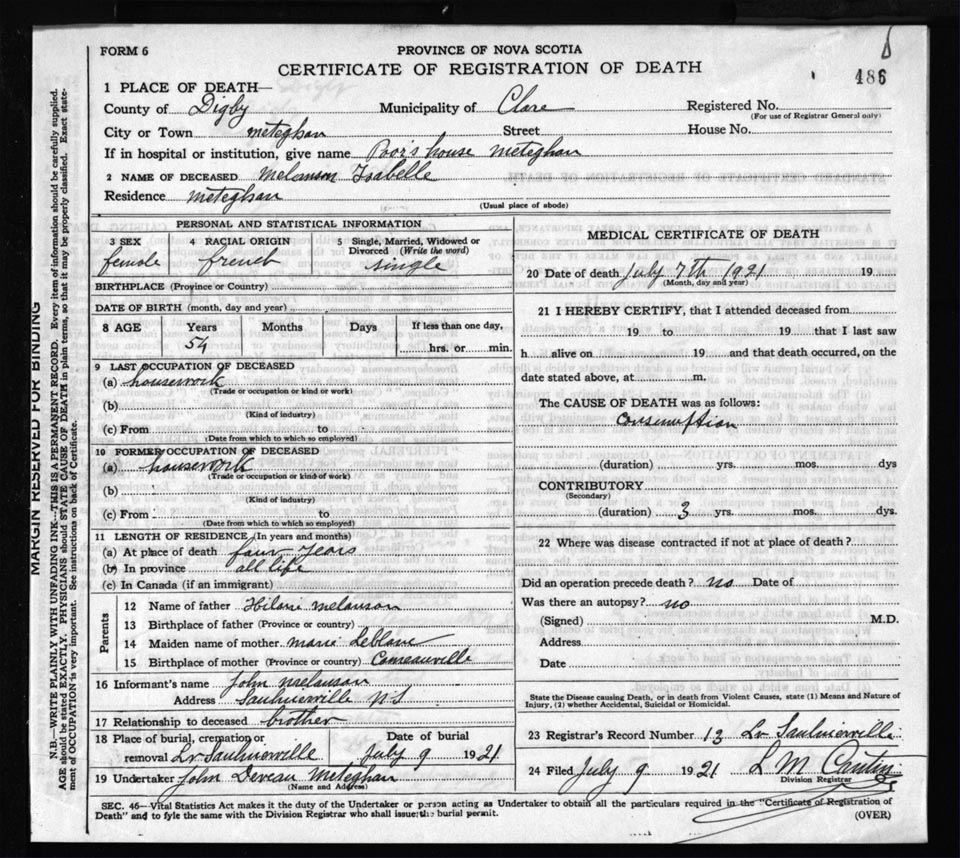 FORM 6
PROVINCE OF NOVA SCOTIA
CERTIFICATE OF REGISTRATION OF DEATH
486
1 PLACE OF DEATH—
County of Digby Municipality of Clare Registered No.
(For use of Registrar General only)
City or Town meteghan Street House No.
If in hospital or institution, give name Poor's house meteghan
2 NAME OF DECEASED Melanson Isabelle
Residence meteghan
(Usual place of abode)
PERSONAL AND STATISTICAL INFORMATION
3 SEX 4 RACIAL ORIGIN 5 Single, Married, Widowed or Divorced (Write the word)
female french single
BIRTHPLACE (Province or Country)
DATE OF BIRTH (month, day and year)
8 AGE Years Months Days If less than one day,
54 hrs. or min.
9 LAST OCCUPATION OF DECEASED
(a) housework
(Trade or occupation or kind of work)
(b)
(Kind of industry)
(c) From to
(Date from which to which so employed)
10 FORMER OCCUPATION OF DECEASED
(a) housework
(Trade or occupation or kind of work)
(b)
(Kind of industry)
(c) From to
(Date from which to which so employed)
11 LENGTH OF RESIDENCE (In years and months)
(a) At place of death four years
(b) In province all life
(c) In Canada (if an immigrant)
Parents
12 Name of father Hilaire melanson
13 Birthplace of father (Province or country)
14 Maiden name of mother marie Leblanc
15 Birthplace of mother (Province or country) Comeauville
16 Informant's name John melanson
Address Saulnierville NS
17 Relationship to deceased brother
18 Place of burial, cremation or removal Lr Saulnierville
Date of burial July 9 1921
19 Undertaker John Deveau Meteghan
(Name and Address)
MEDICAL CERTIFICATE OF DEATH
20 Date of death July 7th 1921 19
(Month, day and year)
21 I HEREBY CERTIFY, that I attended deceased from
19 to 19 that I last saw
h alive on 19 and that death occurred, on the
date stated above, at m.
The CAUSE OF DEATH was as follows:
Consumption
(duration) yrs. mos. dys
CONTRIBUTORY
(Secondary)
(duration) 3 yrs. mos. dys.
22 Where was disease contracted if not at place of death?
Did an operation precede death? no Date of
Was there an autopsy? no
(Signed) M.D.
Address
Date
State the Disease causing Death, or in death from Violent Causes, state (1) Means and Nature of
Injury, (2) whether Accidental, Suicidal or Homicidal.
23 Registrar's Record Number 13 Lr Saulnierville
24 Filed July 9 1921 L M
Division Registrar
SEC. 46—Vital Statistics Act makes it the duty of the Undertaker or person acting as Undertaker to obtain all the particulars required in the "Certificate of Registration of
Death" and to fyle the same with the Division Registrar who shall issue the burial permit.
(OVER)
MARGIN RESERVED FOR BINDING
N.B.—WRITE PLAINLY WITH UNFADING INK—THIS IS A PERMANENT RECORD. Every item of information should be carefully supplied.
AGE should be stated EXACTLY. PHYSICIANS should STATE CAUSE OF DEATH in plain terms, so that it may be properly classified. Exact state-
ment of OCCUPATION is very important. See instructions on back of Certificate.